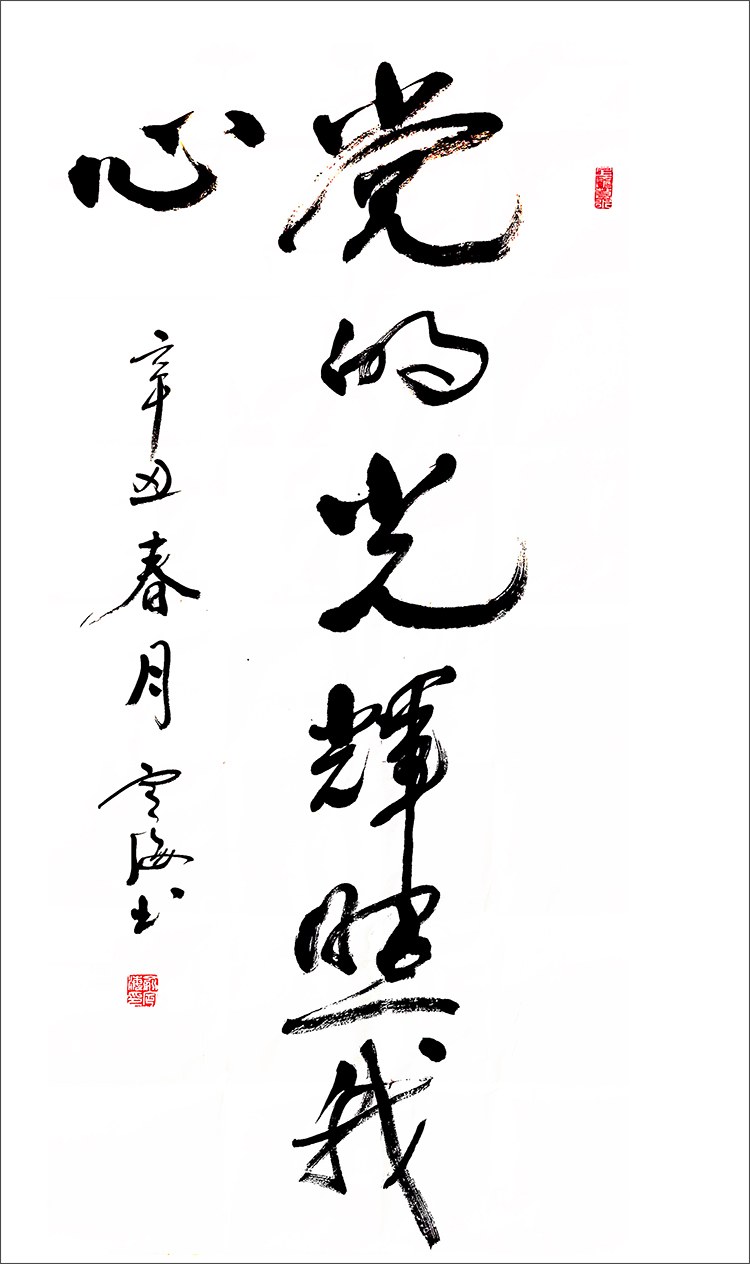 党的光辉照我
心
辛丑春月云海书